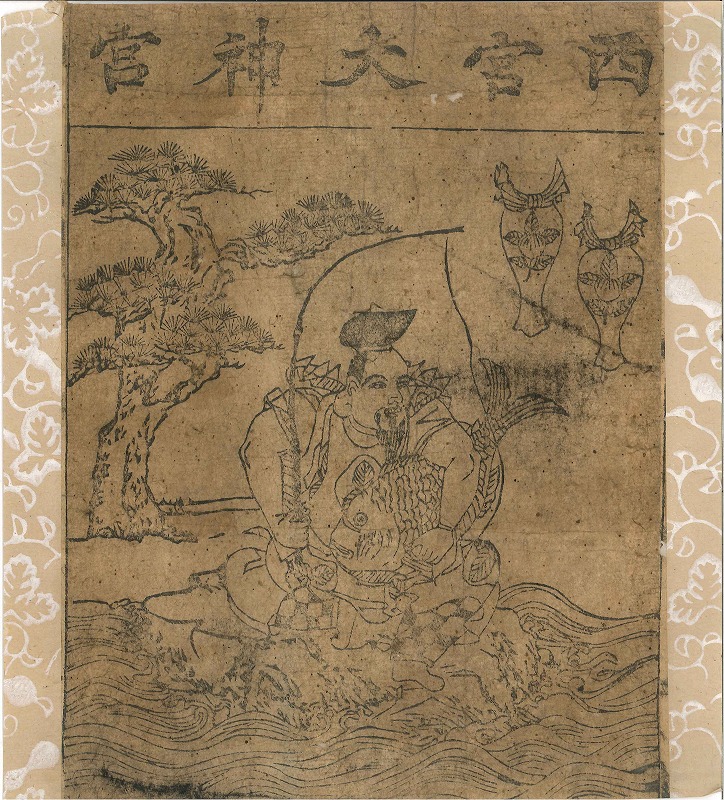 西宮大神宮